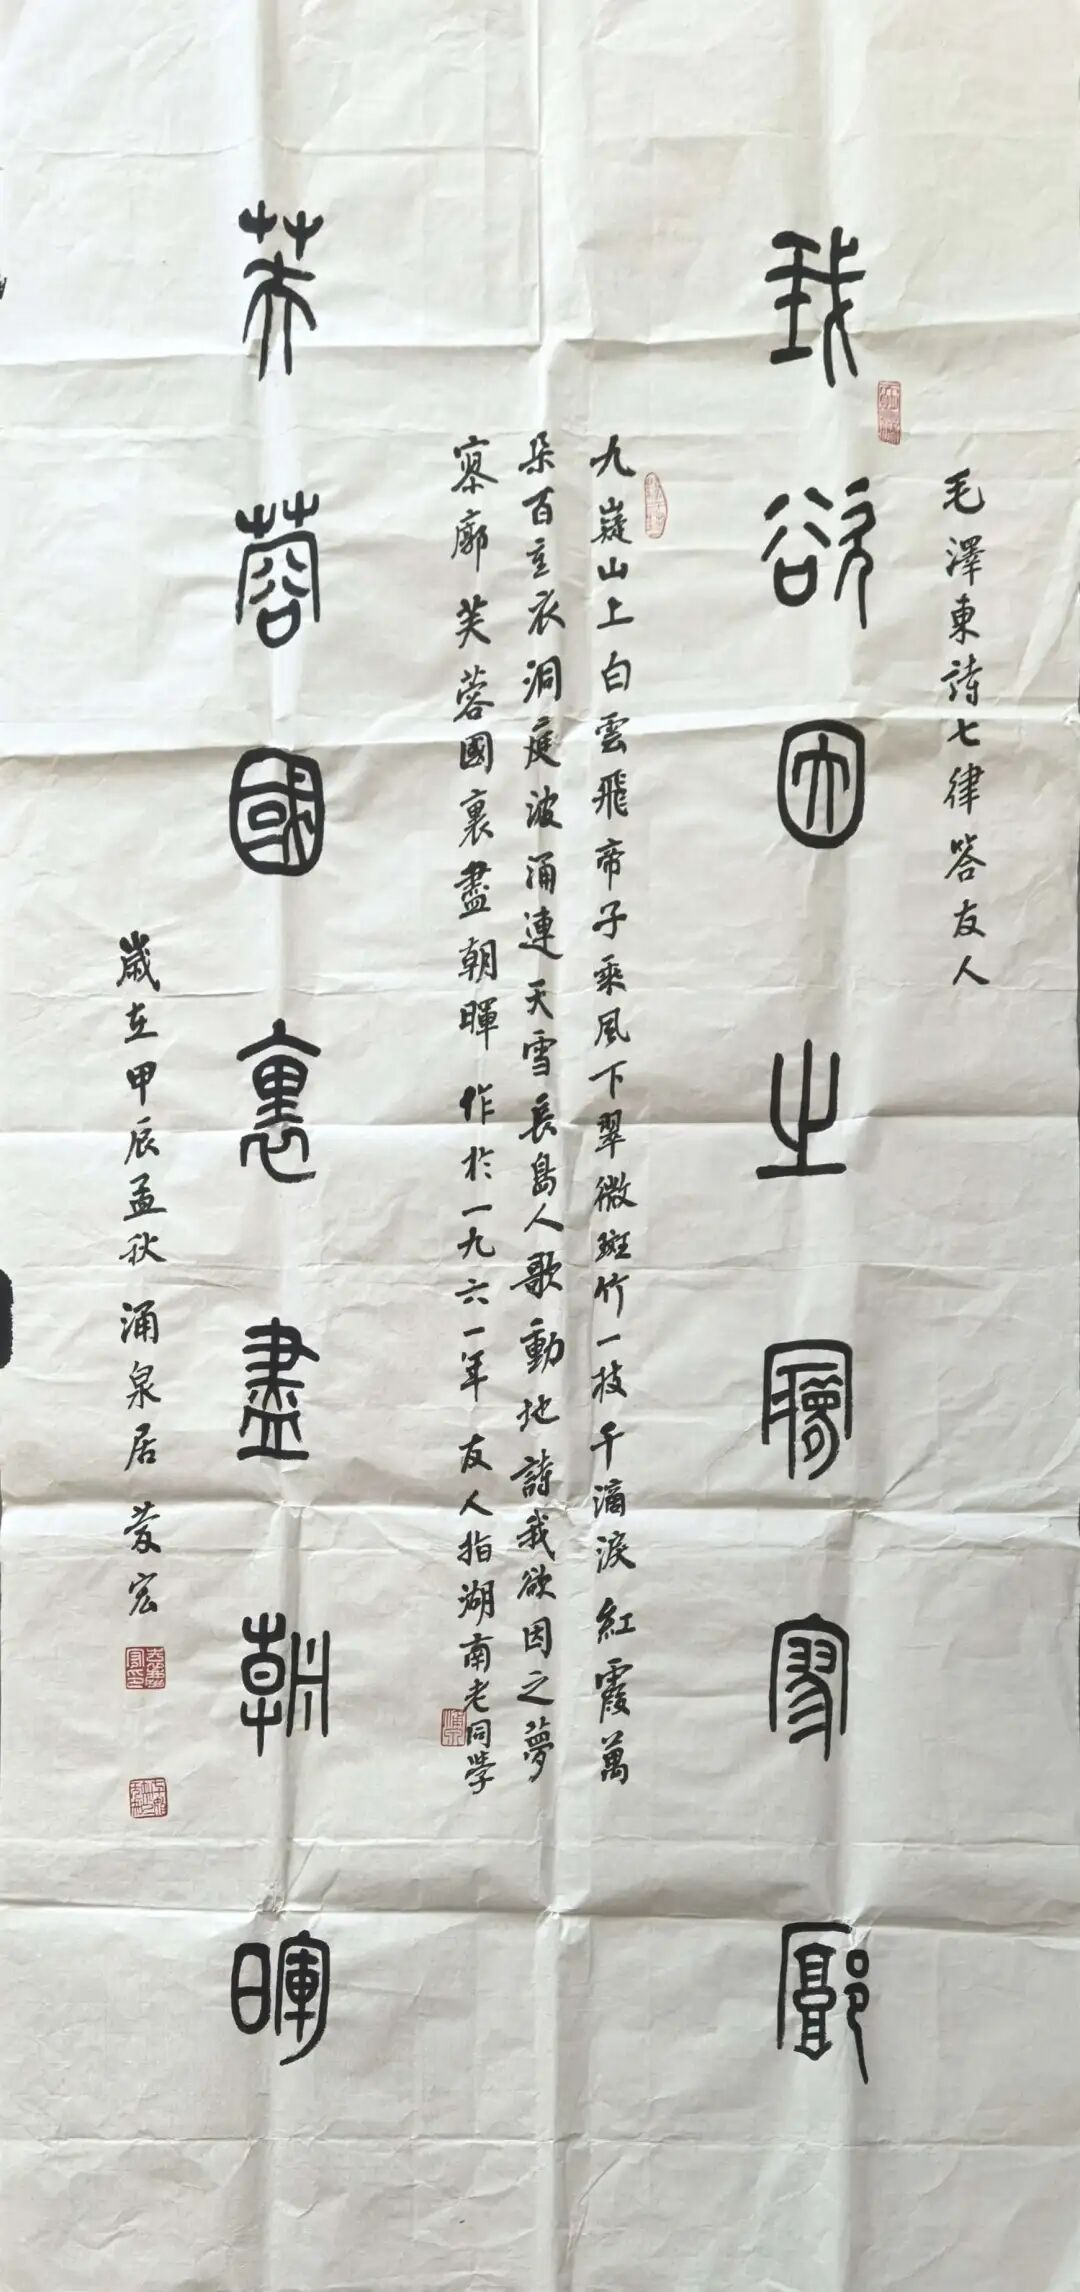 毛澤東詩七律答友人
我欲因之夢寥廓
九嶷山上白雲飛帝子乘風下翠微斑竹一枝千滴淚紅霞萬
朵百重衣洞庭波涌連天雪長島人歌動地詩我欲因之夢
寥廓芙蓉國裏盡朝暉 作於一九六一年 友人指湖南老同學
芙蓉國裏盡朝暉
歲在甲辰孟秋 涌泉居 宏